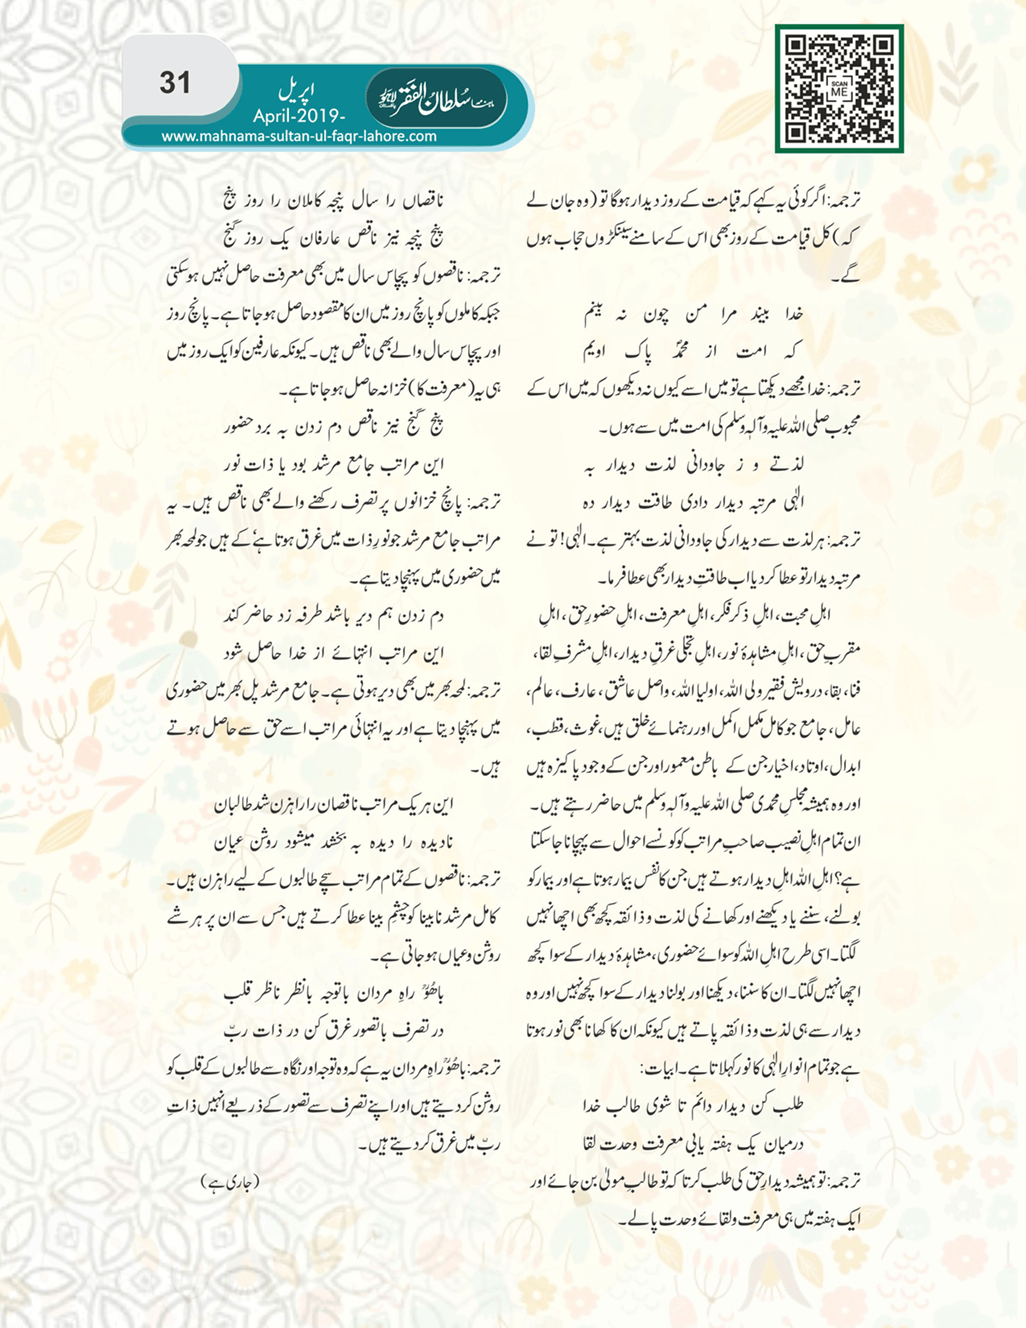 31
اپریل
April-2019-
ماہنامہ سُلطان الفقر لاہور
www.mahnama-sultan-ul-faqr-lahore.com
SCAN
ME
ترجمہ: اگر کوئی یہ کہے کہ قیامت کے روز دیدار ہوگا تو (وہ جان لے
کہ) کل قیامت کے روز بھی اس کے سامنے سینکڑوں حجاب ہوں
گے۔
خدا بیند مرا من چون نہ بینم
کہ امت از محمدؐ پاک اویم
ترجمہ: خدا مجھے دیکھتا ہے تو میں اسے کیوں نہ دیکھوں کہ میں اس کے
محبوب صلی اللہ علیہ وآلہٖ وسلم کی امت میں سے ہوں۔
لذتے و ز جاودانی لذت دیدار بہ
الٰہی مرتبہ دیدار دادی طاقت دیدار دہ
ترجمہ: ہر لذت سے دیدار کی جاودانی لذت بہتر ہے۔ الٰہی! تو نے
مرتبہ دیدار تو عطا کر دیا اب طاقتِ دیدار بھی عطا فرما۔
اہلِ محبت، اہلِ ذکر فکر، اہلِ معرفت، اہلِ حضورِ حق، اہلِ
مقربِ حق، اہلِ مشاہدۂ نور، اہلِ تجلی غرقِ دیدار، اہلِ مشرفِ لقا،
فنا، بقا، درویش فقیر ولی اللہ، اولیا اللہ، واصل عاشق، عارف، عالم،
عامل، جامع جو کامل مکمل اکمل اور رہنمائے خلق ہیں، غوث، قطب،
ابدال، اوتاد، اخیار جن کے باطن معمور اور جن کے وجود پاکیزہ ہیں
اور وہ ہمیشہ مجلسِ محمدی صلی اللہ علیہ وآلہٖ وسلم میں حاضر رہتے ہیں۔
ان تمام اہلِ نصیب صاحبِ مراتب کو کونسے احوال سے پہچانا جا سکتا
ہے؟ اہل اللہ اہلِ دیدار ہوتے ہیں جن کا نفس بیمار ہوتا ہے اور بیمار کو
بولنے، سننے یا دیکھنے اور کھانے کی لذت و ذائقہ کچھ بھی اچھا نہیں
لگتا۔ اسی طرح اہل اللہ کو سوائے حضوری، مشاہدۂ دیدار کے سوا کچھ
اچھا نہیں لگتا۔ ان کا سننا، دیکھنا اور بولنا دیدار کے سوا کچھ نہیں اور وہ
دیدار سے ہی لذت و ذائقہ پاتے ہیں کیونکہ ان کا کھانا بھی نور ہوتا
ہے جو تمام انوارِ الٰہی کا نور کہلاتا ہے۔ ابیات:
طلب کن دیدار دائم تا شوی طالب خدا
درمیان یک ہفتہ یابی معرفت وحدت لقا
ترجمہ: تو ہمیشہ دیدارِ حق کی طلب کر تا کہ تو طالبِ مولیٰ بن جائے اور
ایک ہفتہ میں ہی معرفت ولقائے وحدت پالے۔
ناقصاں را سال پنجہ کاملان را روز پنج
پنج پنجہ نیز ناقص عارفان یک روز گنج
ترجمہ: ناقصوں کو پچاس سال میں بھی معرفت حاصل نہیں ہو سکتی
جبکہ کاملوں کو پانچ روز میں ان کا مقصود حاصل ہو جاتا ہے۔ پانچ روز
اور پچاس سال والے بھی ناقص ہیں۔ کیونکہ عارفین کو ایک روز میں
ہی یہ (معرفت کا) خزانہ حاصل ہو جاتا ہے۔
پنج گنج نیز ناقص دم زدن بہ برد حضور
این مراتب جامع مرشد بود یا ذات نور
ترجمہ: پانچ خزانوں پر تصرف رکھنے والے بھی ناقص ہیں۔ یہ
مراتب جامع مرشد جو نورِ ذات میں غرق ہوتا ہے‘ کے ہیں جو لمحہ بھر
میں حضوری میں پہنچا دیتا ہے۔
دم زدن ہم دیر باشد طرفہ زد حاضر کند
این مراتب انتہائے از خدا حاصل شود
ترجمہ: لمحہ بھر میں بھی دیر ہوتی ہے۔ جامع مرشد پل بھر میں حضوری
میں پہنچا دیتا ہے اور یہ انتہائی مراتب اسے حق سے حاصل ہوتے
ہیں۔
این ہر یک مراتب ناقصان را راہزن شد طالبان
نادیدہ را دیدہ بہ بخشد میشود روشن عیان
ترجمہ: ناقصوں کے تمام مراتب سچے طالبوں کے لیے راہزن ہیں۔
کامل مرشد نابینا کو چشمِ بینا عطا کرتے ہیں جس سے ان پر ہر شے
روشن و عیاں ہو جاتی ہے۔
باھُوؒ راہِ مردان باتوجہ بانظر ناظر قلب
در تصرف باتصور غرق کن در ذات ربّ
ترجمہ: باھُوؒ راہِ مردان یہ ہے کہ وہ توجہ اور نگاہ سے طالبوں کے قلب کو
روشن کر دیتے ہیں اور اپنے تصرف سے تصور کے ذریعے انہیں ذاتِ
ربّ میں غرق کر دیتے ہیں۔
(جاری ہے)